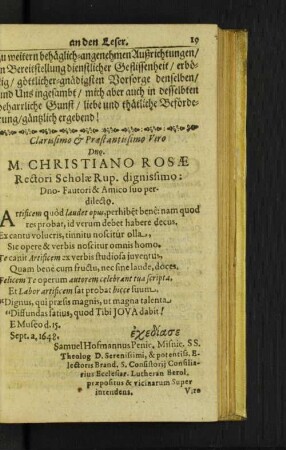 an den Leser. 19
zu weitern behäglich-angenehmen Außrichtungen/
in Bereitstellung dienstlicher Geflissenheit/ erbö-
tig/ göttlicher-gnädigsten Vorsorge denselben/
und Uns ingesambt/ mich aber auch in desselben
beharrliche Gunst/ liebe und thätliche Beförde-
rung/ gäntzlich ergebend!
Clarissimo & Præstantissimo Viro
Dno.
M. CHRISTIANO ROSÆ
Rectori Scholæ Rup. dignissimo:
Dno. Fautori & Amico suo per-
dilecto.
Artificem quòd laudet opus, perhibêt benè: nam quod
res probar, id verum debet habere decus.
Ex cantu volucris, tinnitu noscitur olla,
Sic opere & verbis noscitur omnis homo.
Te canit Artificem ex verbis studiosa juventus,
Quam benè cum fructu, nec sine laude, doces.
Felicem Te operum autorem celebrant tua scripta,
Et Labor artificem sat probat hicce suum.
"Dignus, qui præsis magnis, ut magna talenta
"Diffundas latius, quod Tibi JOVA dabit!
E Museo d. 15.
Sept. a. 1648. ἐχεδίασε
Samuel Hofmannus Penic. Misnic. SS.
Theolog D. Serenissimi, & potentiss. E-
lectoris Brand. S. Consistorij Consilia-
rius Ecclesiar. Lutheran Berol.
præpositus & vicinarum Super
intendens. Viro